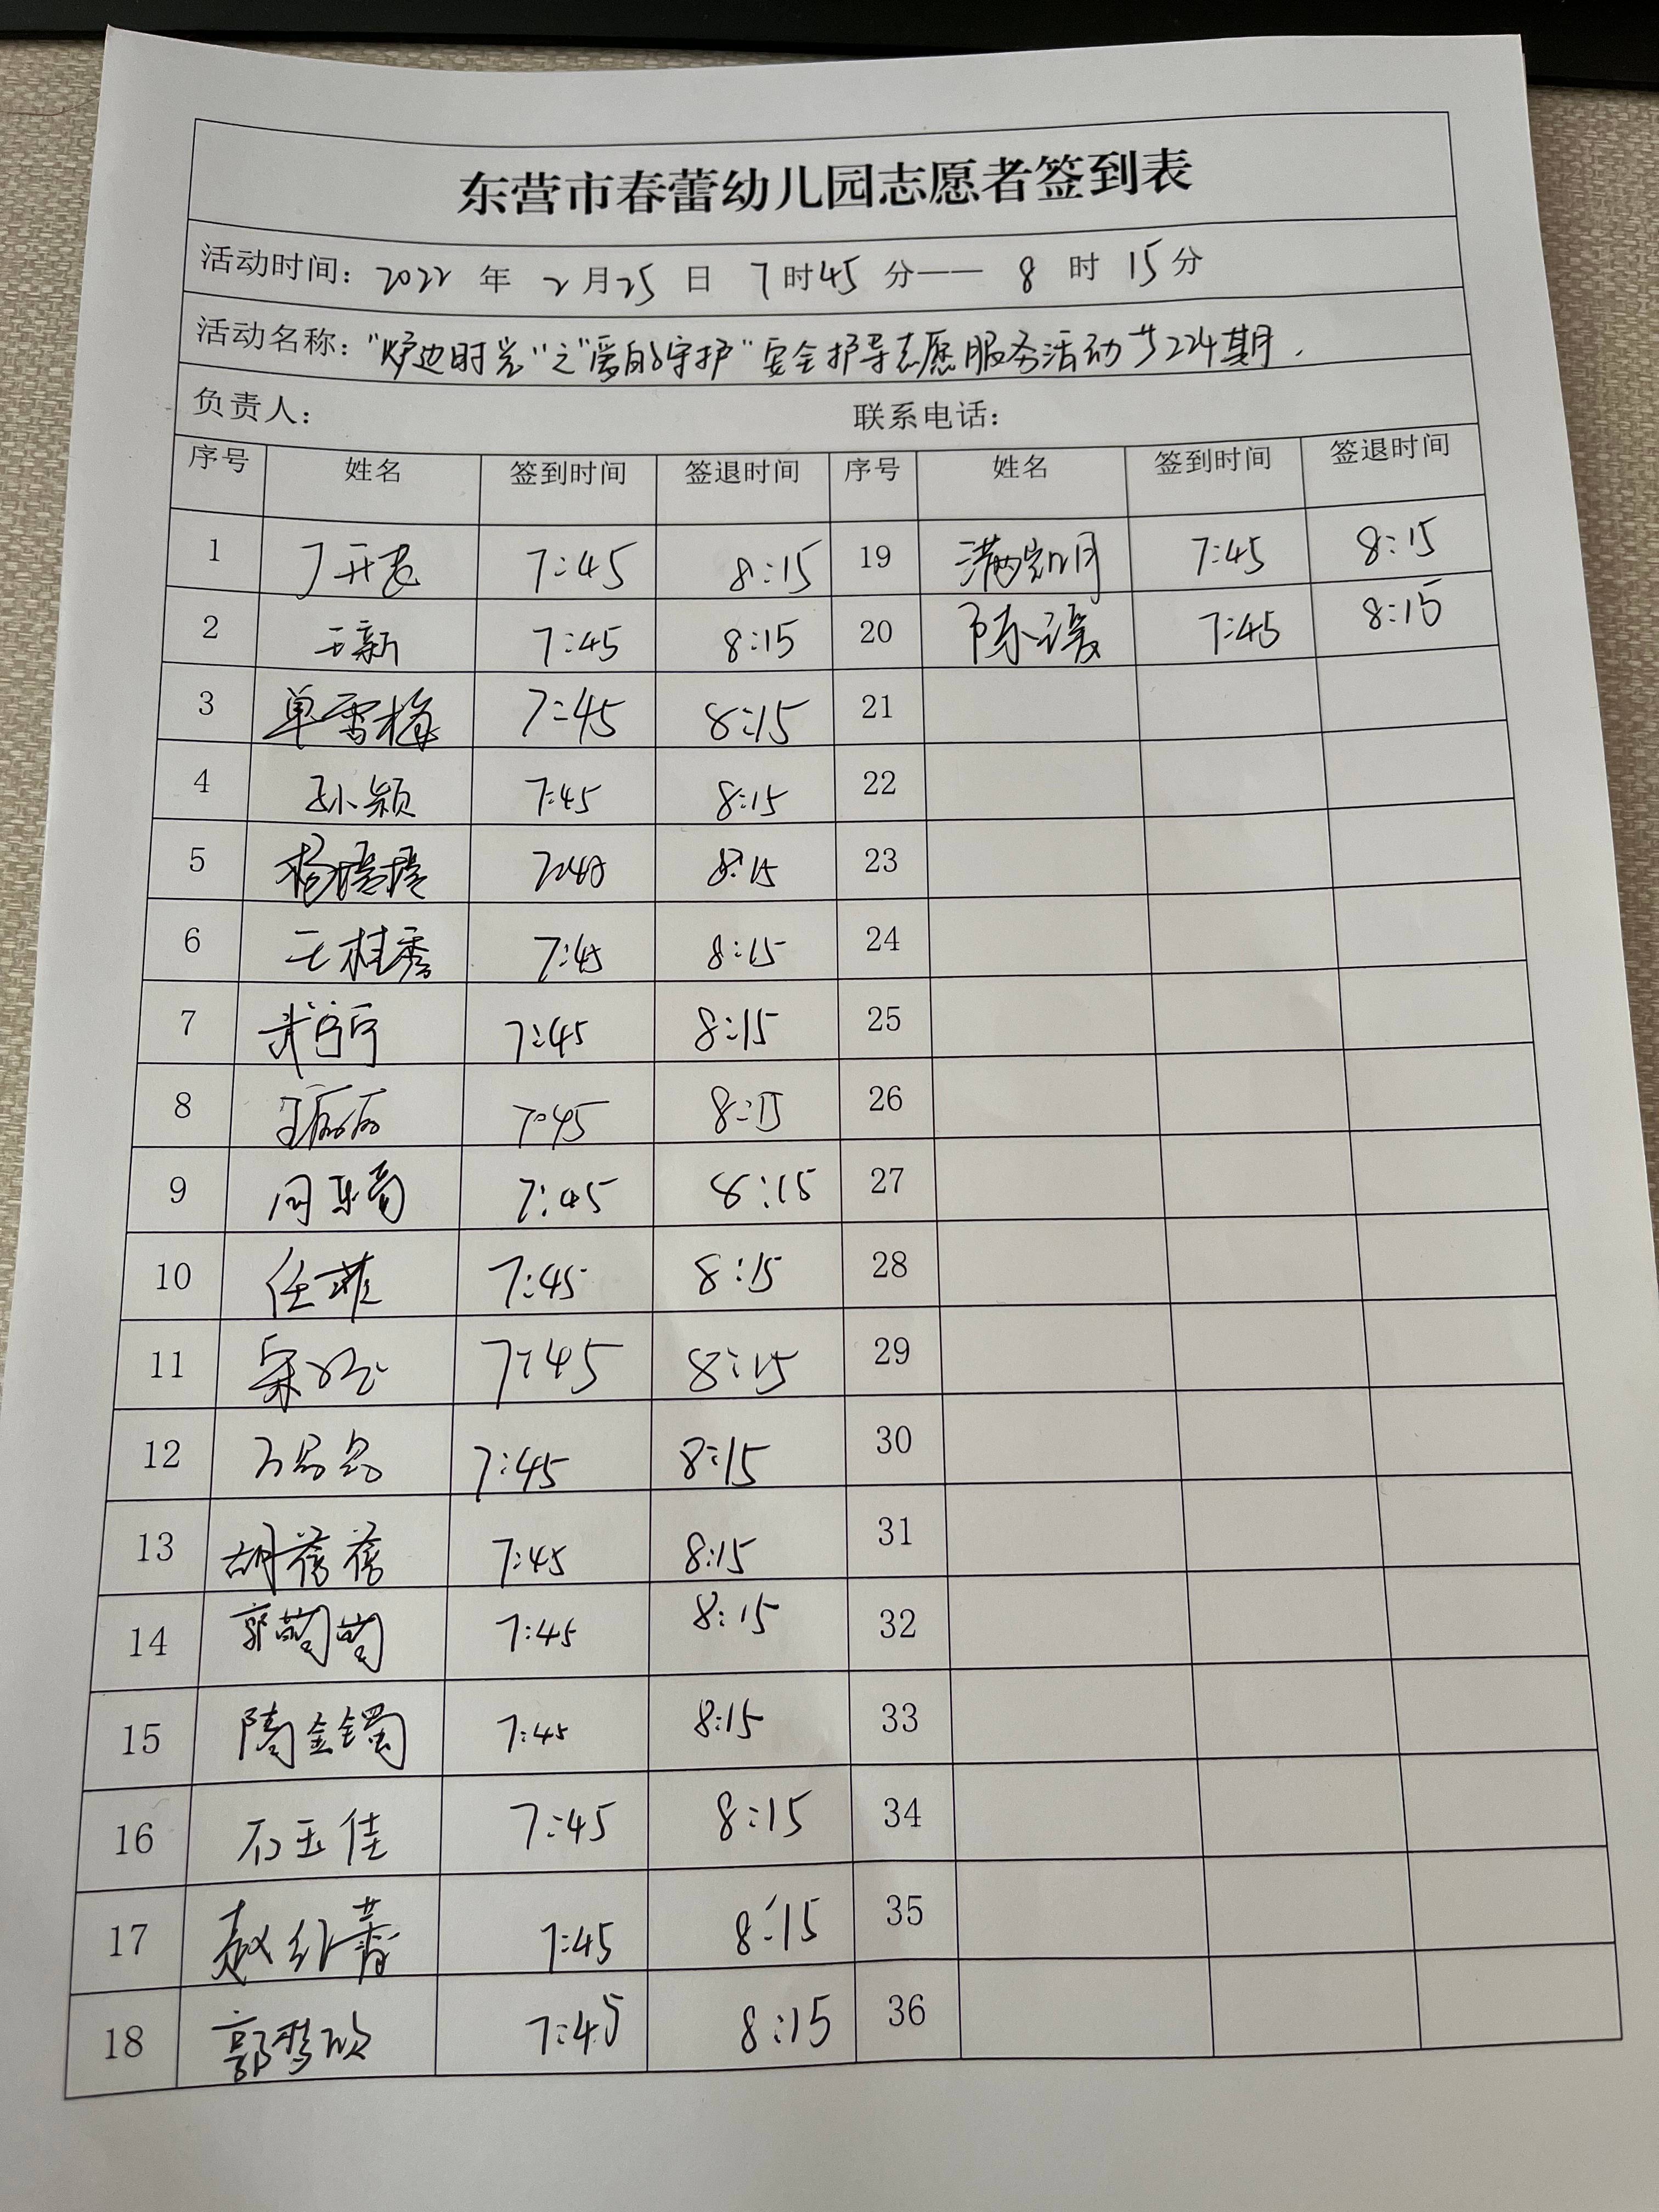 东营市春蕾幼儿园志愿者签到表
活动时间: 2022 年 2月25日 7时45分—— 8时15分
活动名称: "炉边时光"之"爱的守护"安全护导志愿服务活动共224期.
负责人: 联系电话:
序号 姓名 签到时间 签退时间 序号 姓名 签到时间 签退时间
1 7:45 8:15 19 满 明月 7:45 8:15
2 王新 7:45 8:15 20 陈媛 7:45 8:15
3 单雪梅 7:45 8:15 21
4 孙颖 7:45 8:15 22
5 杨璟璟 8:15 23
6 王桂秀 7:45 8:15 24
7 武宁宁 7:45 8:15 25
8 王丽丽 7:45 8:15 26
9 7:45 8:15 27
10 任菲 7:45 8:15 28
11 7:45 8:15 29
12 7:45 8:15 30
13 胡蓓蓓 7:45 8:15 31
14 郭 7:45 8:15 32
15 隋金镯 7:45 8:15 33
16 石玉佳 7:45 8:15 34
17 赵红 7:45 8:15 35
18 郭梦欣 7:45 8:15 36